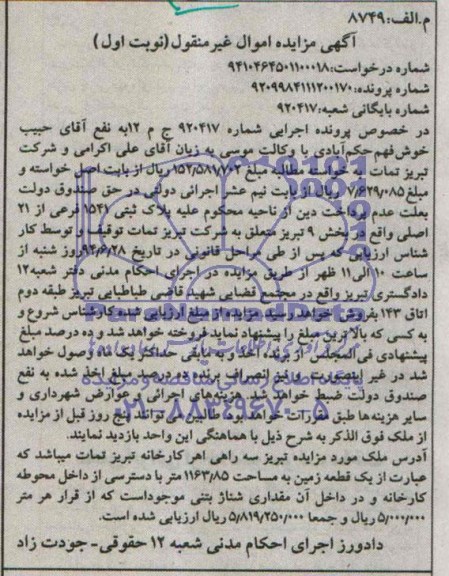 م.الف: ۸۷۴۹
آگهی مزایده اموال غیر منقول (نوبت اول)
شماره درخواست: ۹۴۱۰۴۶۴۵۰۱۱۰۰۰۱۸
شماره پرونده: ۹۲۰۹۹۸۴۱۱۱۲۰۰۱۷۰
شماره بایگانی شعبه: ۹۲۰۴۱۷
در خصوص پرونده اجرایی شماره ۹۲۰۴۱۷ ج م ۱۲به نفع آقای حبیب
خوش‌فهم حکم‌آبادی با وکالت موسی به زبان آقای علی اکرامی و شرکت
تبریز تمات به خواسته مطالبه مبلغ ۱۵۲/۵۸۱/۷۰۳ ریال از بابت اصل خواسته و
مبلغ ۷/۶۲۹/۰۸۵ ریال از بابت نیم عشر اجرائی دولتی در حق صندوق دولت
بعلت عدم پرداخت دین از ناحیه محکوم علیه پلاک ثبتی ۱۵۴۷ فرعی از ۲۱
اصلی واقع در بخش ۹ تبریز متعلق به شرکت تبریز تمات توقیف و توسط کار
شناس ارزیابی که پس از طی مراحل قانونی در تاریخ ۹۴/۶/۲۸ روز شنبه از
ساعت ۱۰ الی ۱۱ ظهر از طریق مزایده در اجرای احکام مدنی دفتر شعبه ۱۲
دادگستری تبریز واقع در مجتمع قضایی شهید قاضی طباطبایی تبریز طبقه دوم
اتاق ۱۴۳ بفروش خواهد رسید مزایده از مبلغ ارزیابی شده کارشناس شروع و
به کسی که بالاترین مبلغ را پیشنهاد نماید فروخته خواهد شد و ده درصد مبلغ
پیشنهادی فی‌المجلس از برنده اخذ و به مابقی حداکثر یک ماه وصول خواهد
شد در غیر اینصورت و نیز انصراف برنده ده درصد مبلغ اخذ شده به نفع
صندوق دولت ضبط خواهد شد. هزینه‌های اجرائی و عوارض شهرداری و
سایر هزینه‌ها طبق مقررات خواهد بود طالبین می‌توانند پنج روز قبل از مزایده
از ملک فوق الذکر به شرح ذیل با هماهنگی این واحد بازدید نمایند.
آدرس ملک مورد مزایده تبریز سه راهی اهر کارخانه تبریز تمات میباشد که
عبارت از یک قطعه زمین به مساحت ۱۱۶۳/۸۵ متر با دسترسی از داخل محوطه
کارخانه و در داخل آن مقداری شناژ بتنی موجود است که از قرار هر متر
۵/۰۰۰/۰۰۰ ریال و جمعا ۵/۸۱۹/۲۵۰/۰۰۰ ریال ارزیابی شده است.
دادورز اجرای احکام مدنی شعبه ۱۲ حقوقی - جودت زاد
پایگاه اطلاع رسانی مناقصه و مزایده
۰۲۱-۸۸۳۴۹۶۷۰-۵